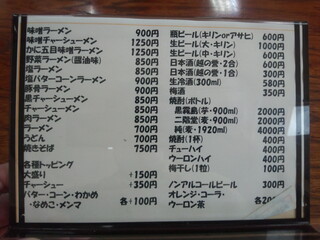 味噌ラーメン 900円
味噌チャーシューメン 1250円
かに五目味噌ラーメン 1250円
野菜ラーメン(醤油味) 850円
塩ラーメン 850円
塩バターコーンラーメン 900円
豚骨ラーメン 900円
黒チャーシューメン 850円
チャーシューメン 850円
肉ラーメン 850円
ラーメン 700円
うどん 700円
焼きそば 750円
各種トッピング
大盛り +150円
チャーシュー +350円
バター・コーン・わかめ
・なめこ・メンマ 各+100円
瓶ビール(キリンorアサヒ) 600円
生ビール(大・キリン) 1000円
生ビール(中・キリン) 600円
日本酒(越の誉・2合) 600円
日本酒(越の誉・1合) 300円
生冷酒(300ml) 580円
梅酒 350円
焼酎(ボトル)
黒霧島(芋・900ml) 2000円
二階堂(麦・900ml) 2000円
純(麦・1920ml) 4000円
焼酎(1杯) 400円
チューハイ 400円
ウーロンハイ 400円
梅干し(1粒) 100円
ノンアルコールビール 300円
オレンジ・コーラ・
ウーロン茶